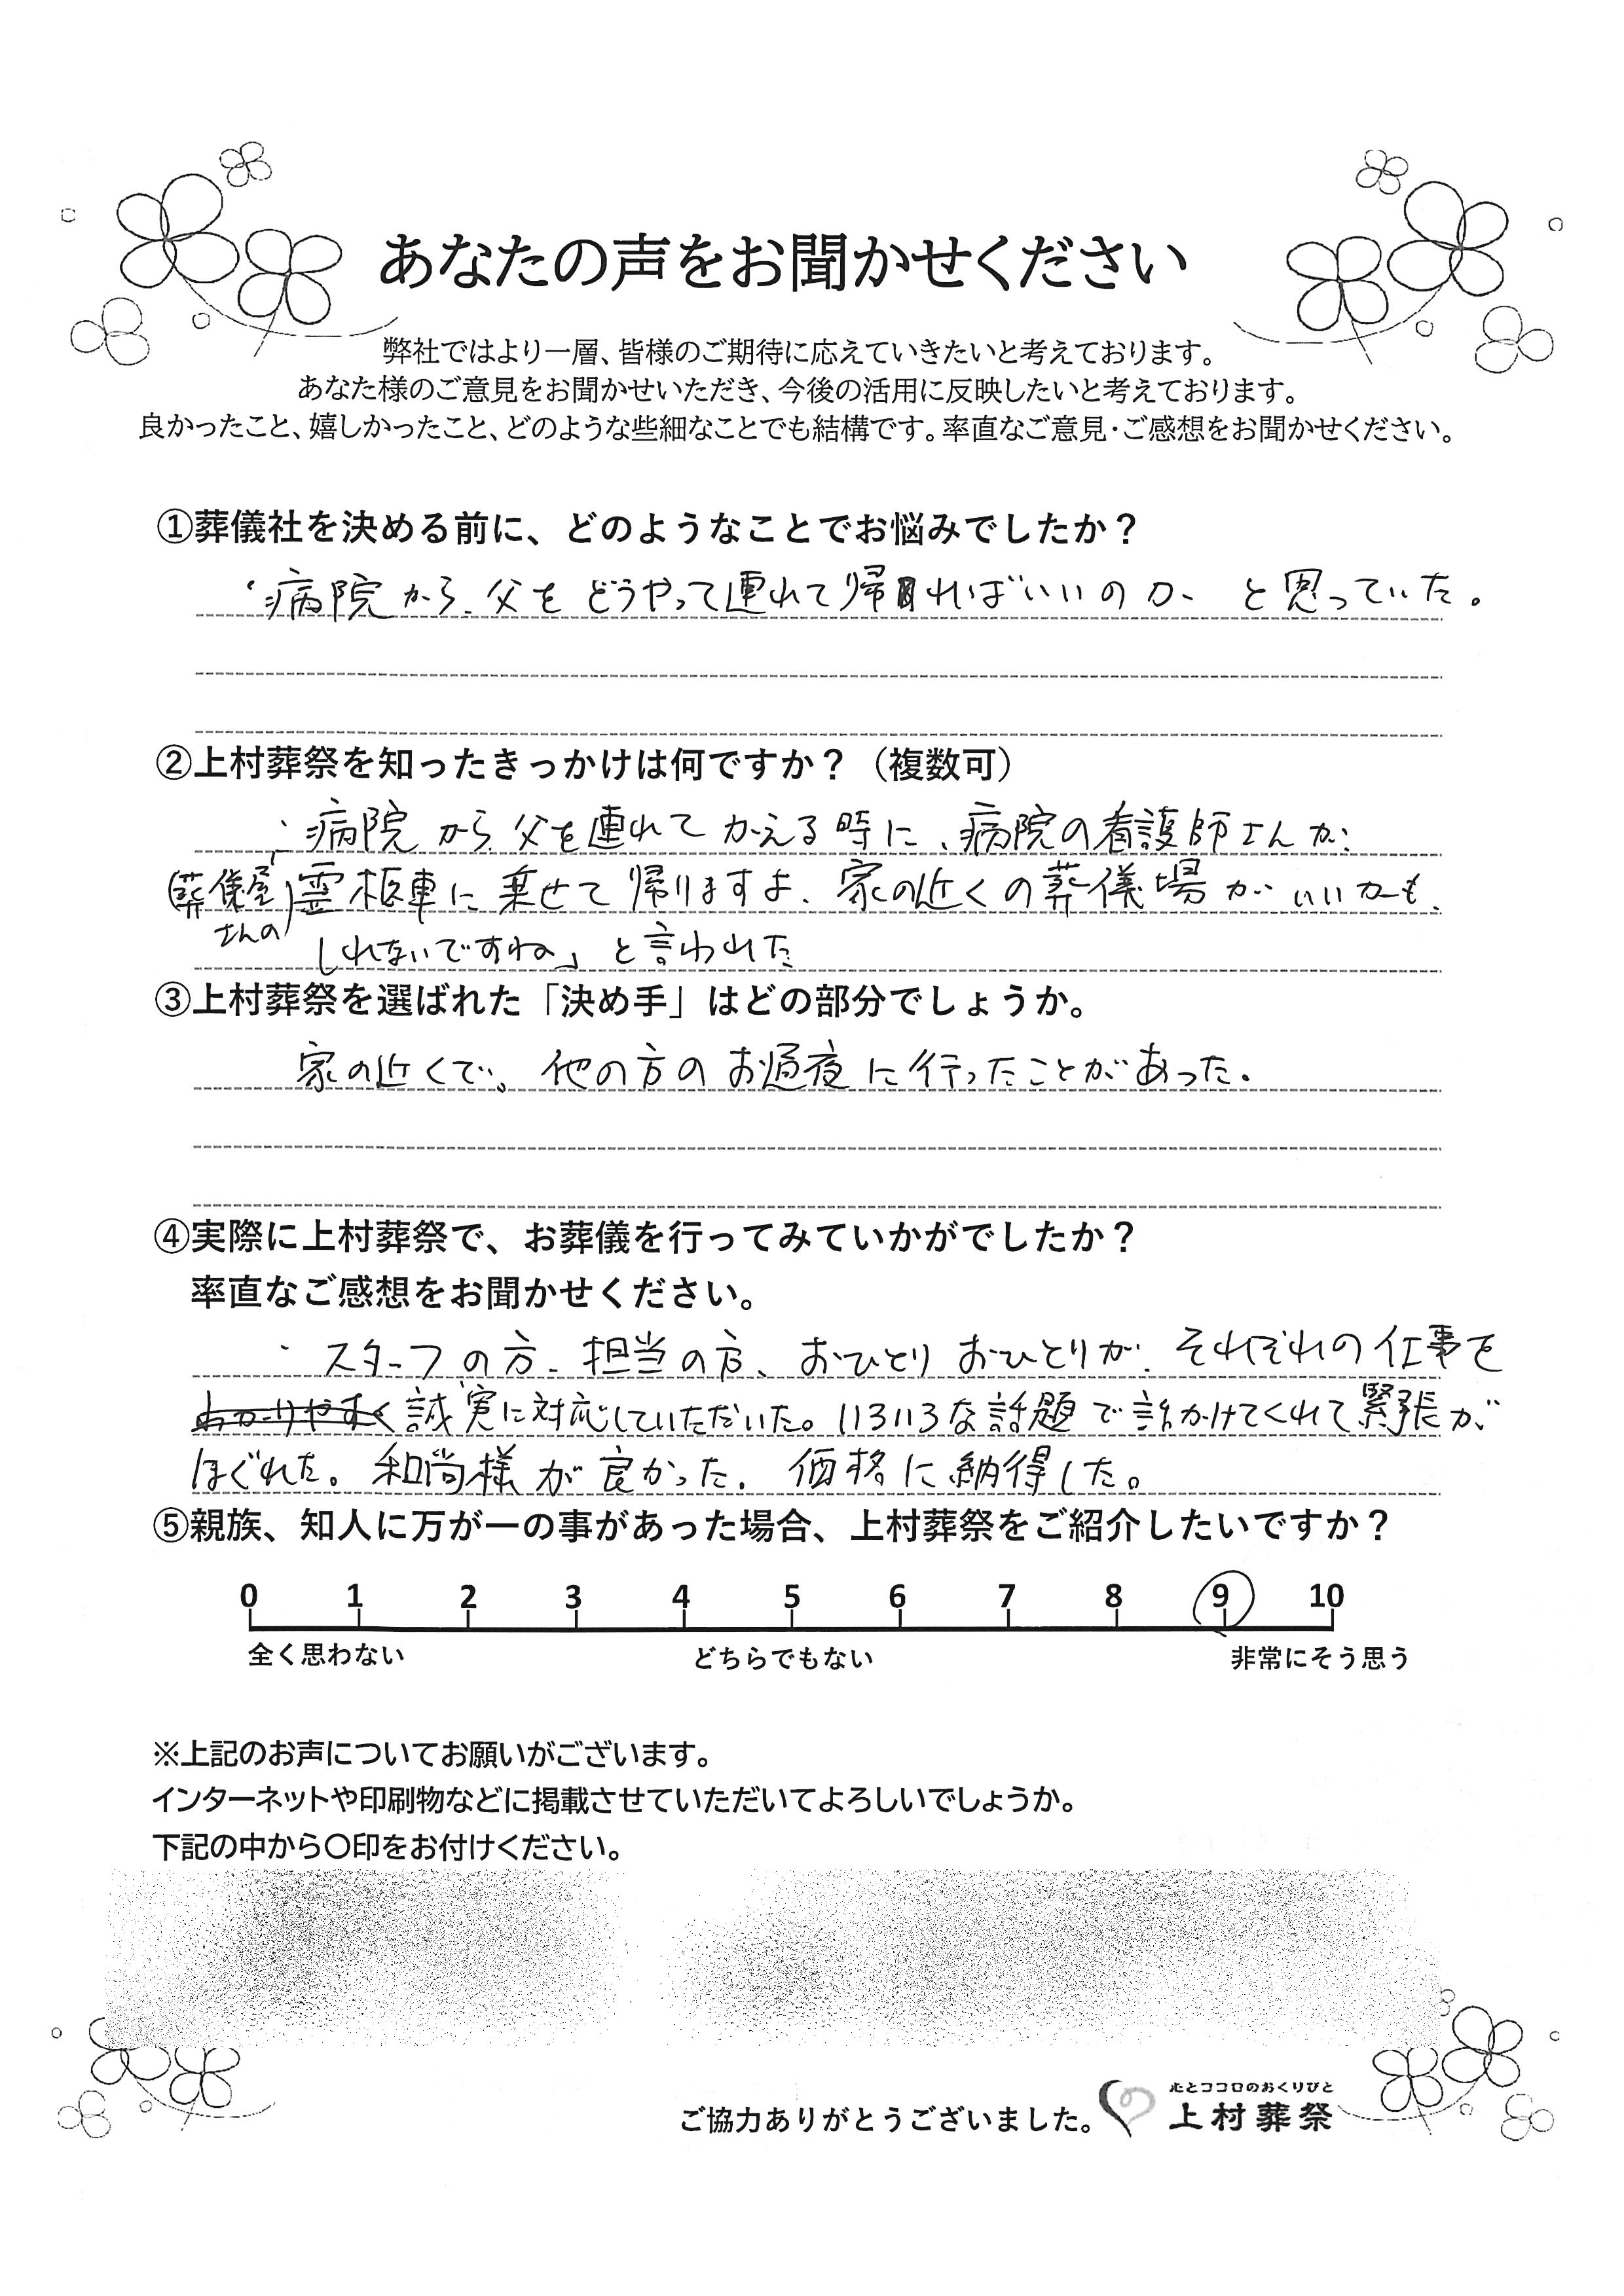 あなたの声をお聞かせください
弊社ではより一層、皆様のご期待に応えていきたいと考えております。
あなた様のご意見をお聞かせいただき、今後の活用に反映したいと考えております。
良かったこと、嬉しかったこと、どのような些細なことでも結構です。率直なご意見・ご感想をお聞かせください。
①葬儀社を決める前に、どのようなことでお悩みでしたか？
・病院から、父をどうやって連れて帰ればいいのか、と思っていた。
②上村葬祭を知ったきっかけは何ですか？（複数可）
・病院から父を連れてかえる時に、病院の看護師さんが、
「(葬儀屋さんの)霊柩車に乗せて帰りますよ、家の近くの葬儀場がいいかも、
しれないですね」と言われた
③上村葬祭を選ばれた「決め手」はどの部分でしょうか。
家の近くで、他の方のお通夜に行ったことがあった。
④実際に上村葬祭で、お葬儀を行ってみていかがでしたか？
率直なご感想をお聞かせください。
・スタッフの方、担当の方、おひとりおひとりが、それぞれの仕事を
わかりやすく誠実に対応していただいた。いろいろな話題で話かけてくれて緊張が
ほぐれた。和尚様が良かった。価格に納得した。
⑤親族、知人に万が一の事があった場合、上村葬祭をご紹介したいですか？
0 1 2 3 4 5 6 7 8 9 10
全く思わない どちらでもない 非常にそう思う
※上記のお声についてお願いがございます。
インターネットや印刷物などに掲載させていただいてよろしいでしょうか。
下記の中から〇印をお付けください。
ココロのおくりびと
ご協力ありがとうございました。 上村葬祭